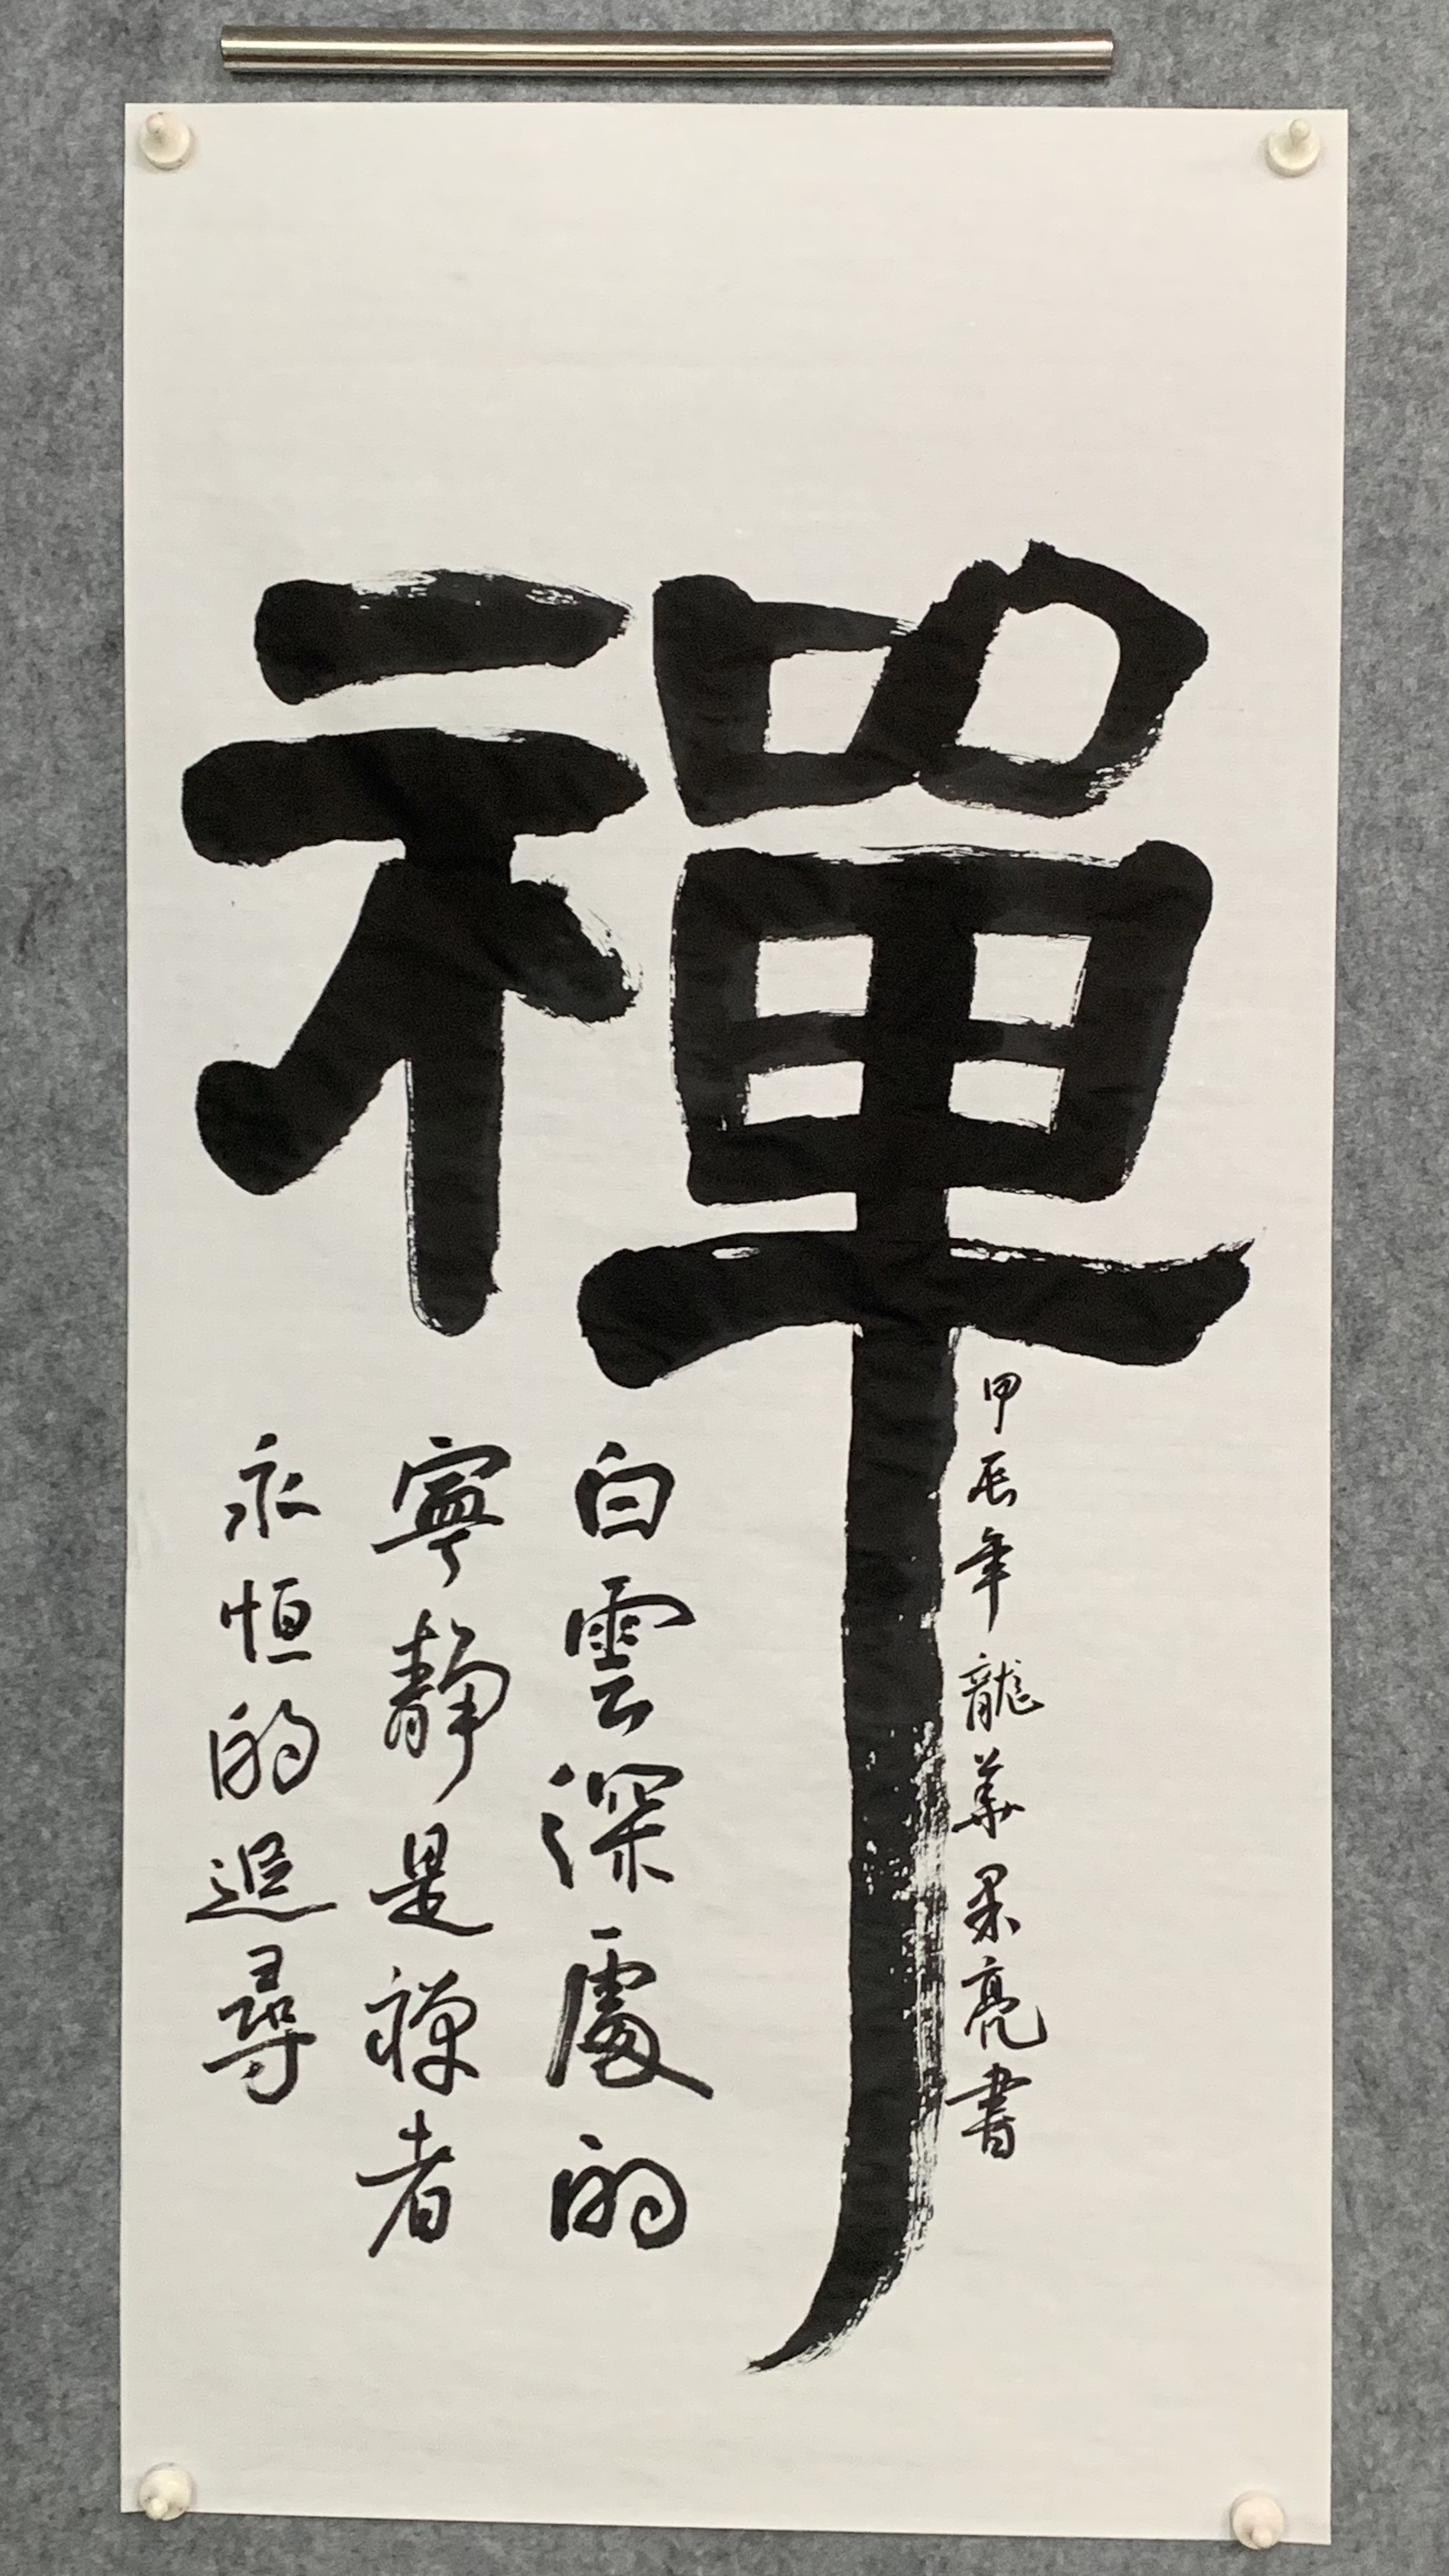 禪
甲辰年龍華果亮書
白雲深處的
寧靜是禅者
永恒的追尋